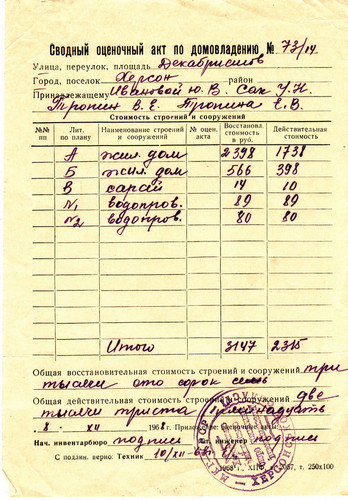 Сводный оценочный акт по домовладению № 73/14
Улица, переулок, площадь Декабристов
Город, поселок Херсон район
Принадлежащему Ивановой Ю. В. Сах У. Н.
Тропин В. Е. Тропина Е. В.
Стоимость строений и сооружений
№№ пп Лит. по плану Наименование строений и сооружений № оцен. акта Восстановл. стоимость в руб. Действительная стоимость
А жил. дом 2398 1738
Б жил. дом 566 398
В сарай 14 10
№1 водопров. 89 89
№2 водопров. 80 80
Итого 3147 2315
Общая восстановительная стоимость строений и сооружений три
тысячи сто сорок семь
Общая действительная стоимость строений и сооружений две
тысячи триста пятнадцать
8. XII 1968 г. Приложение: оценочные акты:
Нач. инвентарбюро подпись инженер подпись
С подлин. верно: Техник 10/XII 68г.
1968 г. т. 250х100